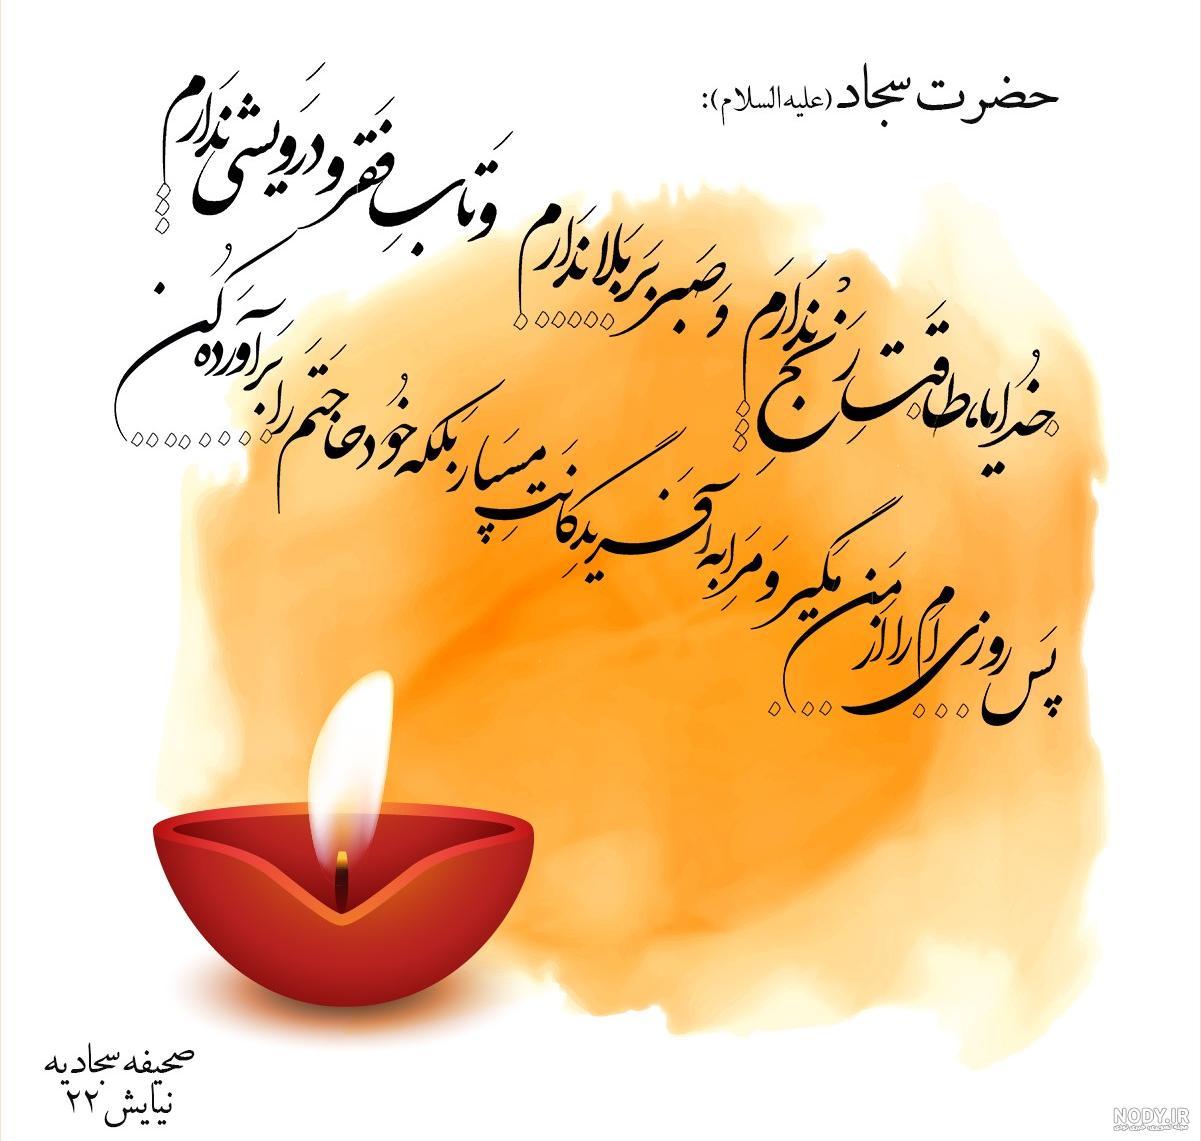 حضرت سجاد (علیه‌السلام):
خدایا، طاقتِ رَنج نَدارَم وَ صَبر بَر بَلا نَدارَم وَ تابِ فَقر وَ دَرویشی نَدارَم
پَس روزی اَم را اَز مَن مَگیر وَ مَرا به آفَریدِگانَت مَسِپار بَلکه خُود حاجَتَم را بَرآوَرده کُن
صحیفه سجادیه
نیایش ۲۲
NODY.IR